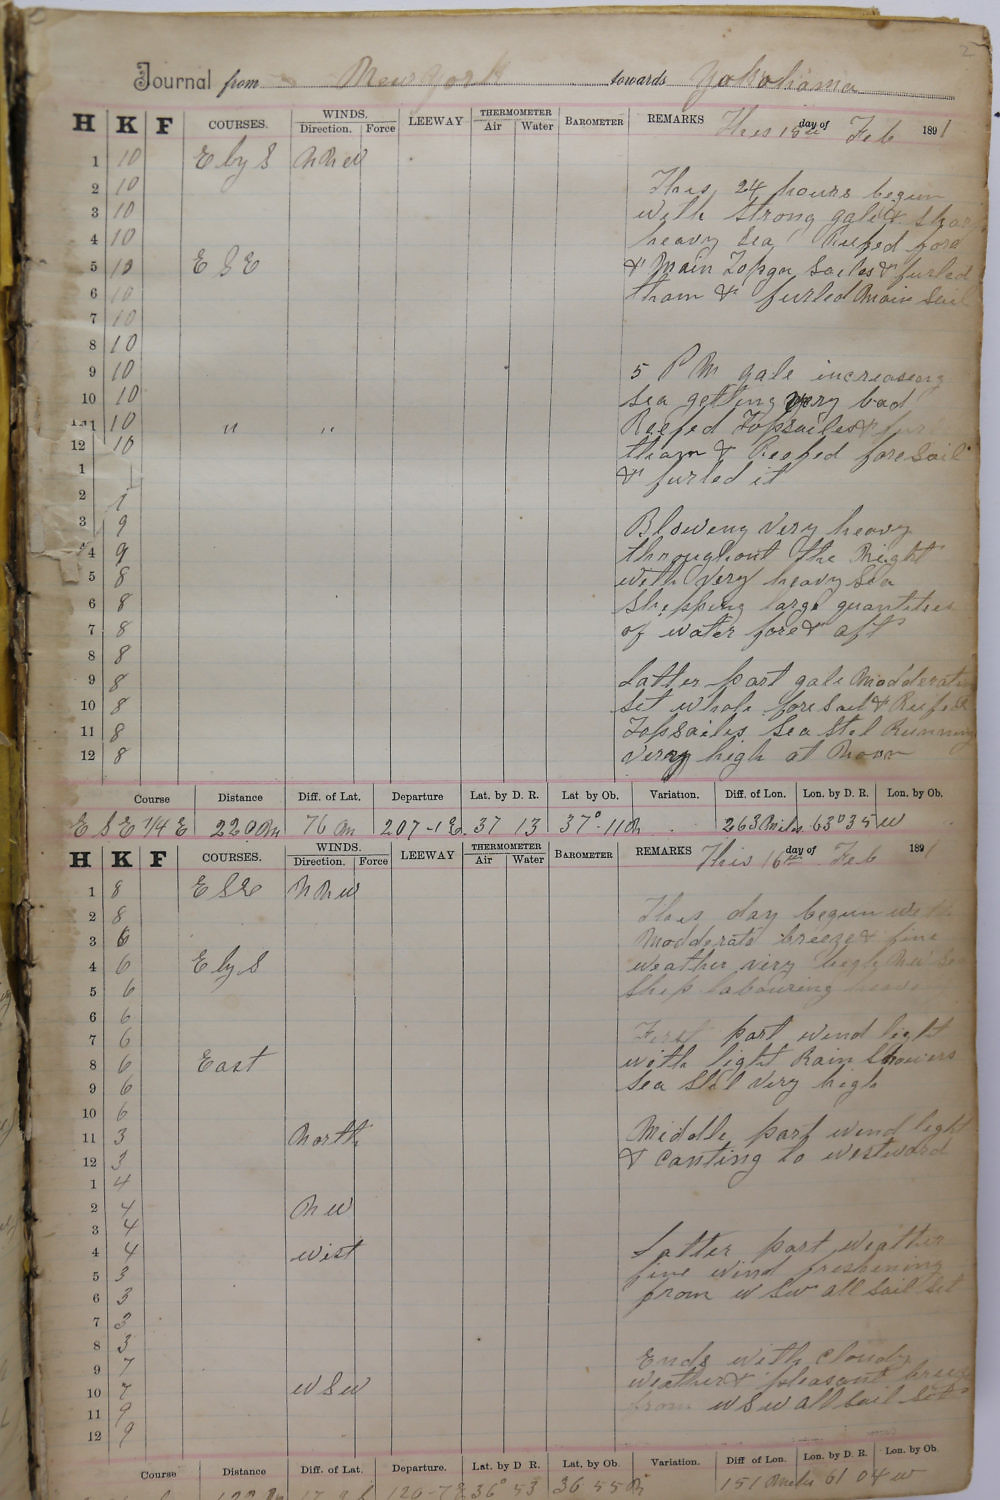 2
Journal from New York towards Yokohama
H K F COURSES. WINDS. Direction. Force LEEWAY THERMOMETER Air Water BAROMETER REMARKS This 15th day of Feb 1891
1 10 E by S NNW
2 10 This 24 hours begun
3 10 with strong gale & sharp
4 10 heavy Sea Reefed fore
5 10 E S E & Main Topgn Sailes & furled
6 10 tham & furled Main Sail
7 10
8 10
9 10 5 P M gale increaseng
10 10 Sea getting very bad
11 10 " " Reefed Topsailes &
12 10 tham & Reefed foresail
1 & furled it
2
3 9 Bloweng Very heavy
4 9 throughout the Night
5 8 with Very heavy Sea
6 8 Shepping large quantities
7 8 of water fore & aft
8 8
9 8 Latter part gale Modderating
10 8 Set whole foresail & Reefed
11 8 Topsailes Sea Stel Running
12 8 Very high at Noon
Course Distance Diff. of Lat. Departure Lat. by D. R. Lat by Ob. Variation. Diff. of Lon. Lon. by D. R. Lon. by Ob.
E S E 1/4 E 220 m 76 m 207-1 E. 37 13 37°-11 N 263 Miles 63°35 W
H K F COURSES. WINDS. Direction. Force LEEWAY THERMOMETER Air Water BAROMETER REMARKS This 16th day of Feb 1891
1 8 E S E N N W
2 8 This day begun with
3 6 Modderate breeze & fine
4 6 E by S weather very high NW Sea
5 6 Ship labouring heavy
6 6
7 6 First part wend light
8 6 East with light Rain Showers
9 6 Sea Stel Very high
10 6
11 3 North Middle part wend light
12 3 & canting to westward
1 4
2 4 N W
3 4 Latter part weather
4 4 west fine wind freshening
5 3 from W S W all Sail Set
6 3
7 3
8 3 Ends with cloudy
9 7 weather & pleasant breeze
10 7 W S W from W S W all Sail Set
11 9
12 9
Course Distance Diff. of Lat. Departure. Lat. by D. R. Lat. by Ob. Variation. Diff of Lon. Lon. by D. R. Lon. by Ob.
120-7 E 36° 53 36 55 N 151 Miles 61 04 W